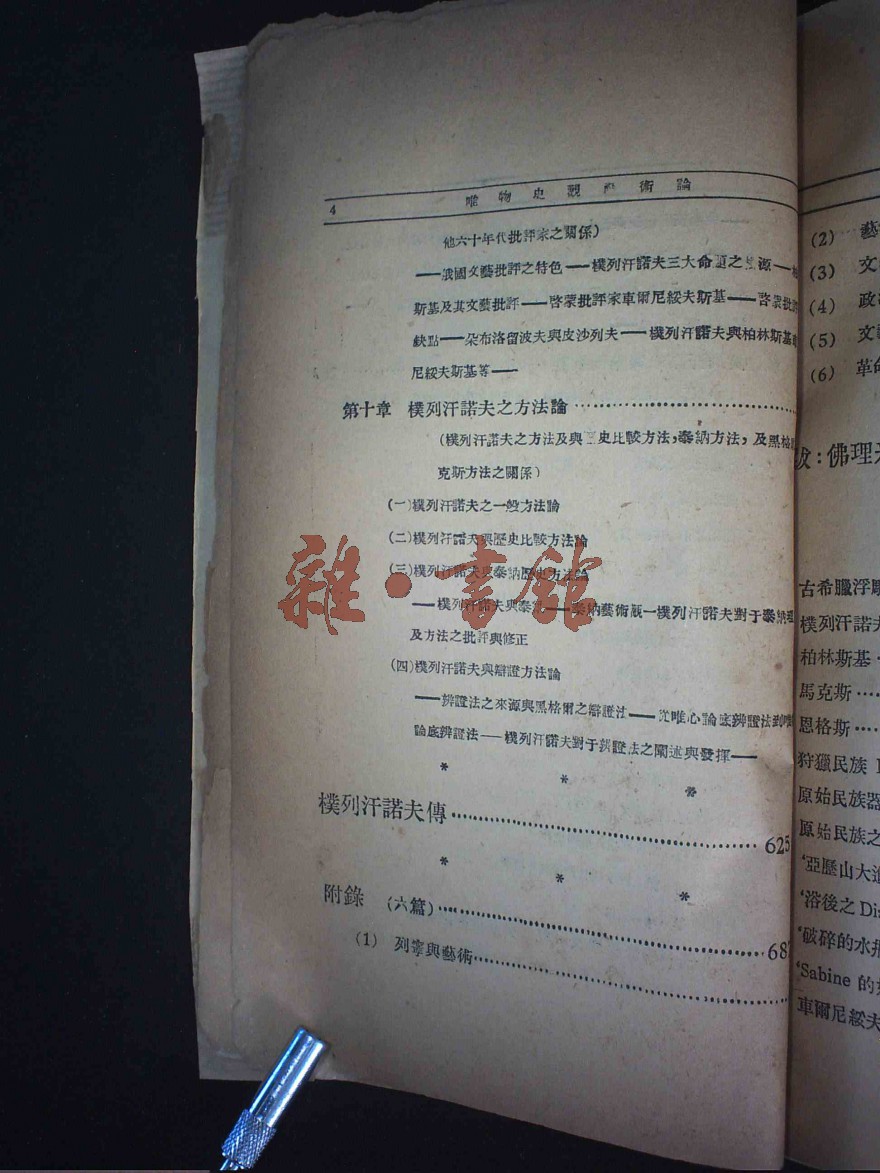 4
唯物史觀藝術論
他六十年代批評家之關係)
——俄國文藝批評之特色——樸列汗諾夫三大命題之 源——
斯基及其文藝批評——啓蒙批評家車爾尼綏夫斯基——啓蒙批
缺點——朵布洛留波夫與皮沙列夫——樸列汗諾夫與柏林斯基
尼綏夫斯基等——
第十章 樸列汗諾夫之方法論
(樸列汗諾夫之方法及與 史比較方法,泰納方法,及黑格
克斯方法之關係)
(一)樸列汗諾夫之一般方法論
(二)樸列汗諾夫與歷史比較方法論
(三)樸列汗諾夫與泰納歷史方法論
——樸列汗諾夫與泰納—— 納藝術 —樸列汗諾夫對于泰納
及方法之批評與修正
(四)樸列汗諾夫與辯證方法論
——辨證法之來源與黑格爾之辯證法——從唯心論底辨證法到唯
論底辨證法——樸列汗諾夫對于辨證法之闡述與發揮——
* * *
樸列汗諾夫傳 625
* * *
附錄 (六篇) 687
(1) 列寧與藝術
雜·書館
(2) 藝
(3) 文
(4) 政
(5) 文
(6) 革命
跋:佛理
古希臘浮雕
樸列汗諾夫
柏林斯基
馬克斯
恩格斯
狩獵民族
原始民族器
原始民族之
'亞歷山大
'浴後之Di
'破碎的水
'Sabine 的
車爾尼綏夫